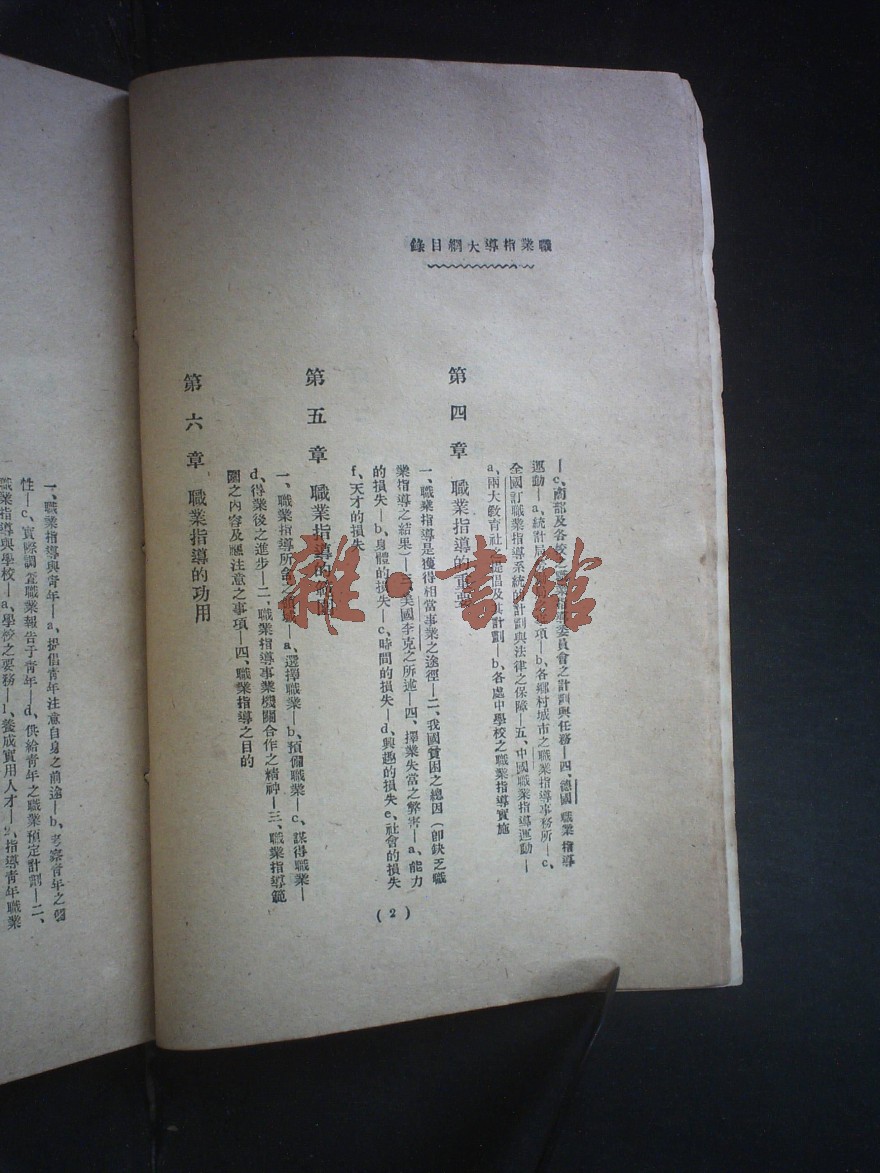 職業指導大綱目錄
—c、商部及各校之職業指導委員會之計劃與任務—四、德國職業指導
運動—a、統計局 事項—b、各鄉村城市之職業指導事務所—c、
全國訂職業指導系統的計劃與法律之保障—五、中國職業指導運動—
a、兩大教育社 提倡及其計劃—b、各處中學校之職業指導實施
第四章 職業指導的重要
一、職業指導是獲得相當事業之途徑—二、我國貧困之總因(卽缺乏職
業指導之結果)—三、美國李克之所述—四、擇業失當之弊害—a、能力
的損失—b、身體的損失—c、時間的損失—d、興趣的損失e、社會的損失
f、天才的損失
第五章 職業指導的範圍
一、職業指導所含之 —a、選擇職業—b、預備職業—c、謀得職業—
d、得業後之進步—二、職業指導事業機關合作之精神—三、職業指導範
圍之內容及應注意之事項—四、職業指導之目的
第六章 職業指導的功用
(2)
一、職業指導與青年—a、提倡青年注意自身之前途—b、考察青年之個
性—c、實際調查職業報告予青年—d、供給青年之職業預定計劃—二、
職業指導與學校—a、學校之要務—1、養成實用人才—2、指導青年職業
雜·書館